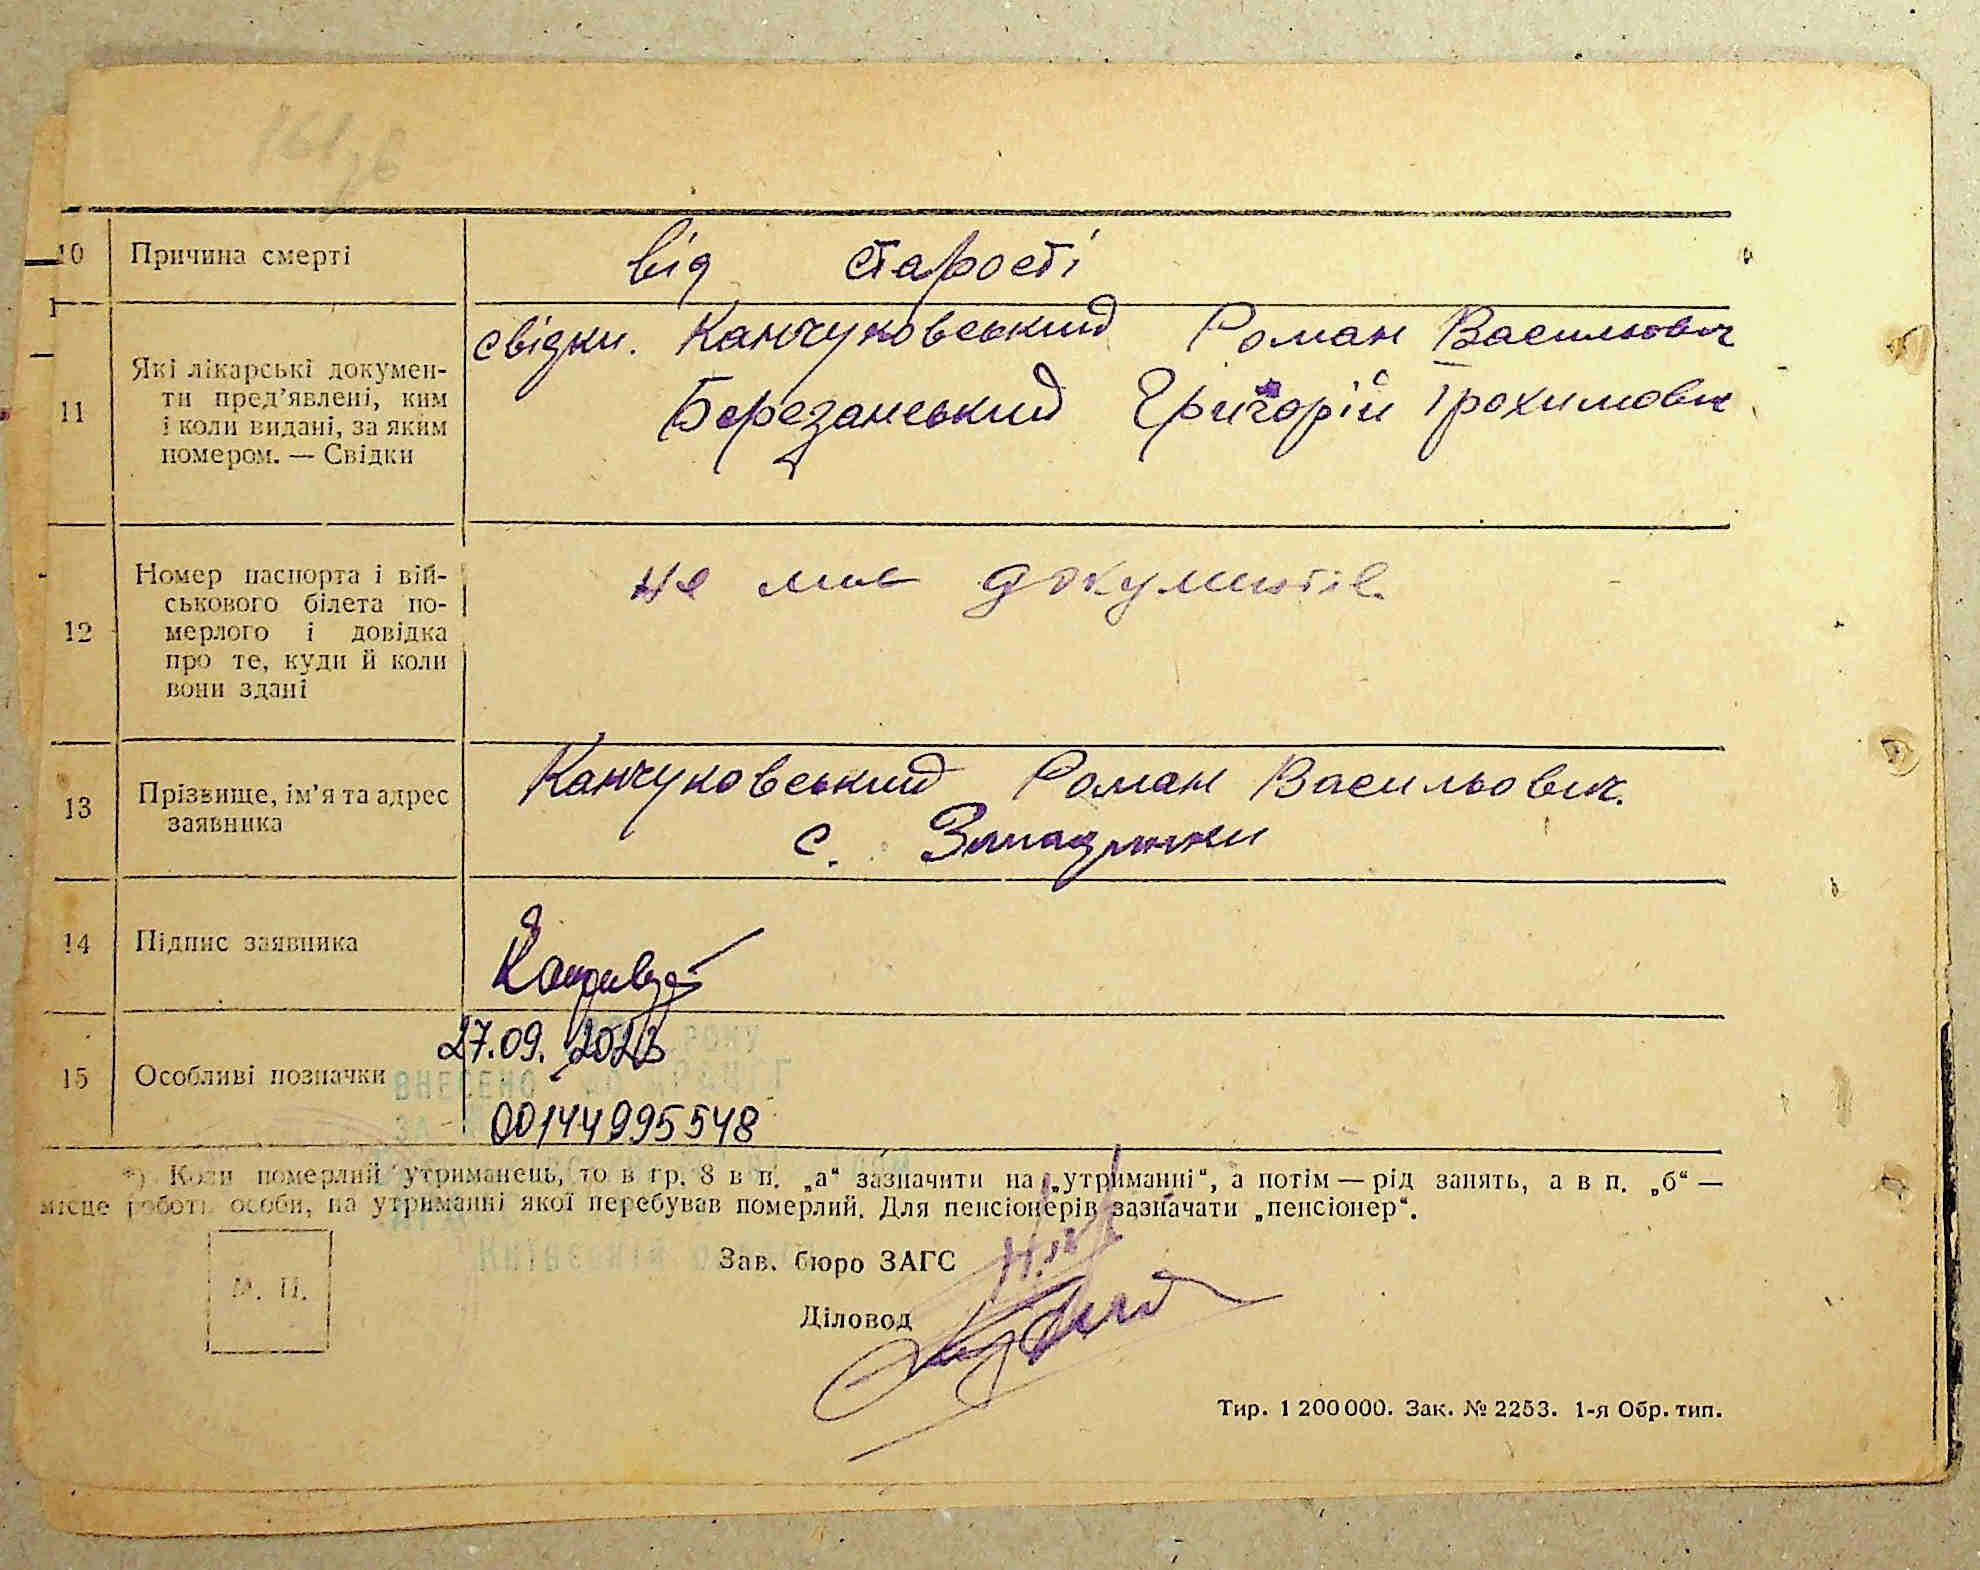 161 зв
10 Причина смерті від старості
11 Які лікарські документи пред'явлені, ким і коли видані, за яким номером. — Свідки
свідки. Канчуковський Роман Васильович
Березанський Григорій Трохимович
12 Номер паспорта і військового білета померлого і довідка про те, куди й коли вони здані
не має документів.
13 Прізвище, ім'я та адрес заявника
Канчуковський Роман Васильович.
с.
14 Підпис заявника
27.09.2023
15 Особливі позначки
ВНЕСЕНО
00144995548
*) Коли померлий утриманець, то в гр. 8 в п. „а“ зазначити на „утриманні“, а потім — рід занять, а в п. „б“ —
місце роботи особи, на утриманні якої перебував померлий. Для пенсіонерів зазначати „пенсіонер“.
Зав. бюро ЗАГС
М. П.
Діловод
Тир. 1 200 000. Зак. № 2253. 1-я Обр. тип.